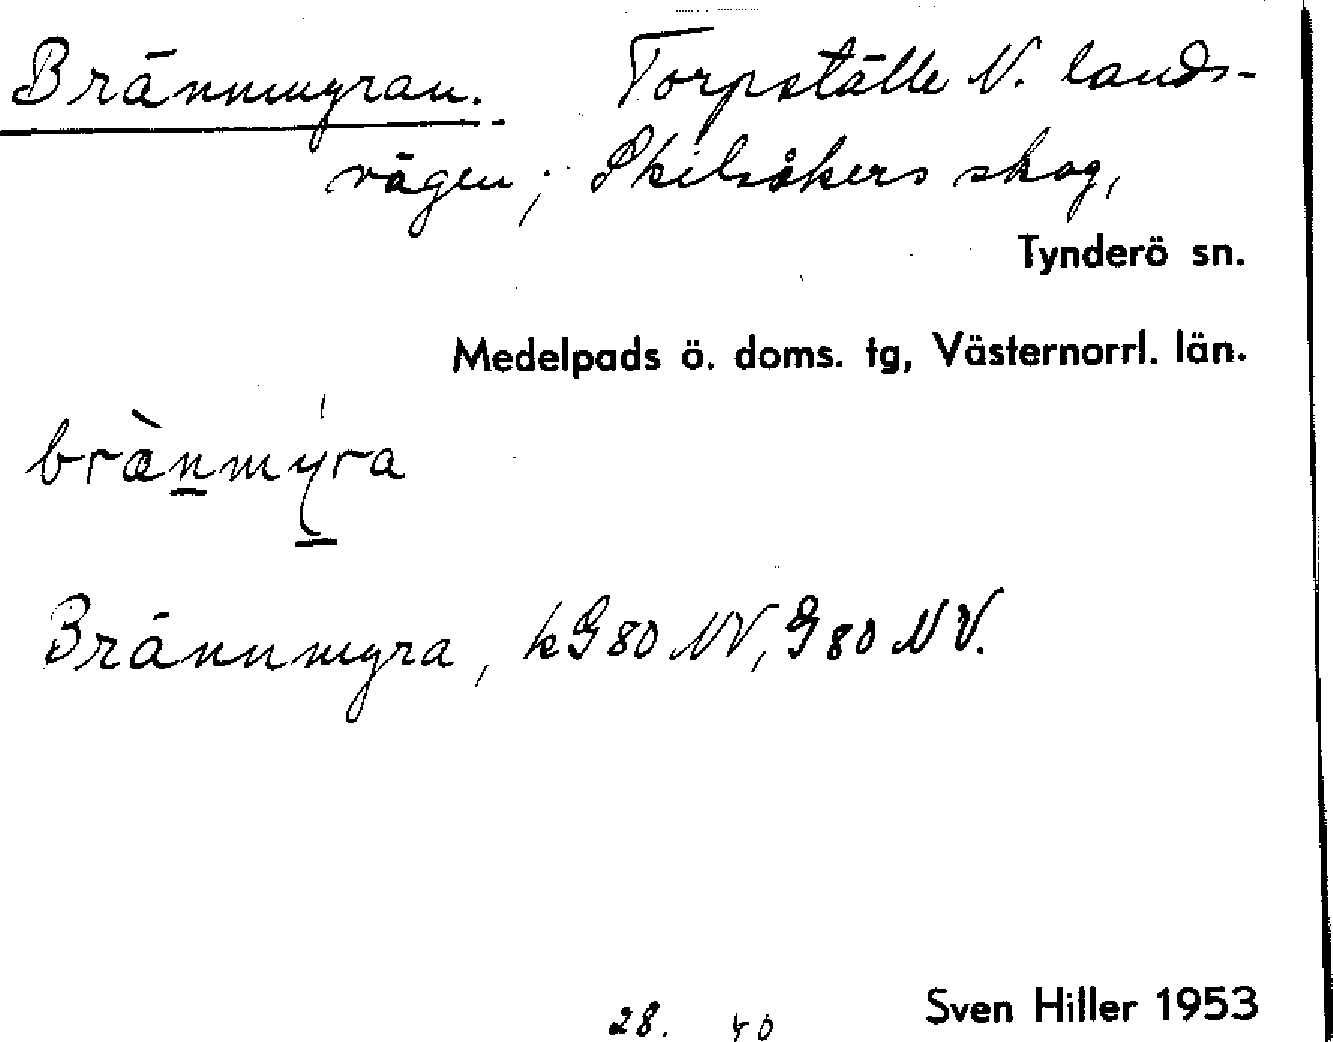 Brännmyran. Torpställe N. lands-
vägen; Skilsåkers skog,
Tynderö sn.
Medelpads ö. doms. tg, Västernorrl. län.
bræ̀nmýra
Brännmyra, kG80 NV, G80 NV.
28. 40 Sven Hiller 1953